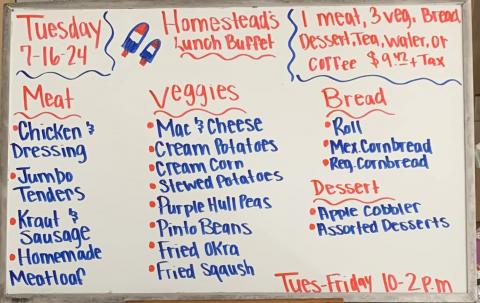 Tuesday
7-16-24
Homestead's
Lunch Buffet
1 meat, 3 veg, Bread
Dessert, Tea, water, or
Coffee $9.42 + Tax
Meat
• Chicken &
Dressing
• Jumbo
Tenders
• Kraut &
Sausage
• Homemade
Meatloaf
Veggies
• Mac & Cheese
• Cream Potatoes
• Cream Corn
• Stewed Potatoes
• Purple Hull Peas
• Pinto Beans
• Fried Okra
• Fried Sqaush
Bread
• Roll
• Mex. Cornbread
• Reg. Cornbread
Dessert
• Apple Cobbler
• Assorted Desserts
Tues-Friday 10-2 p.m